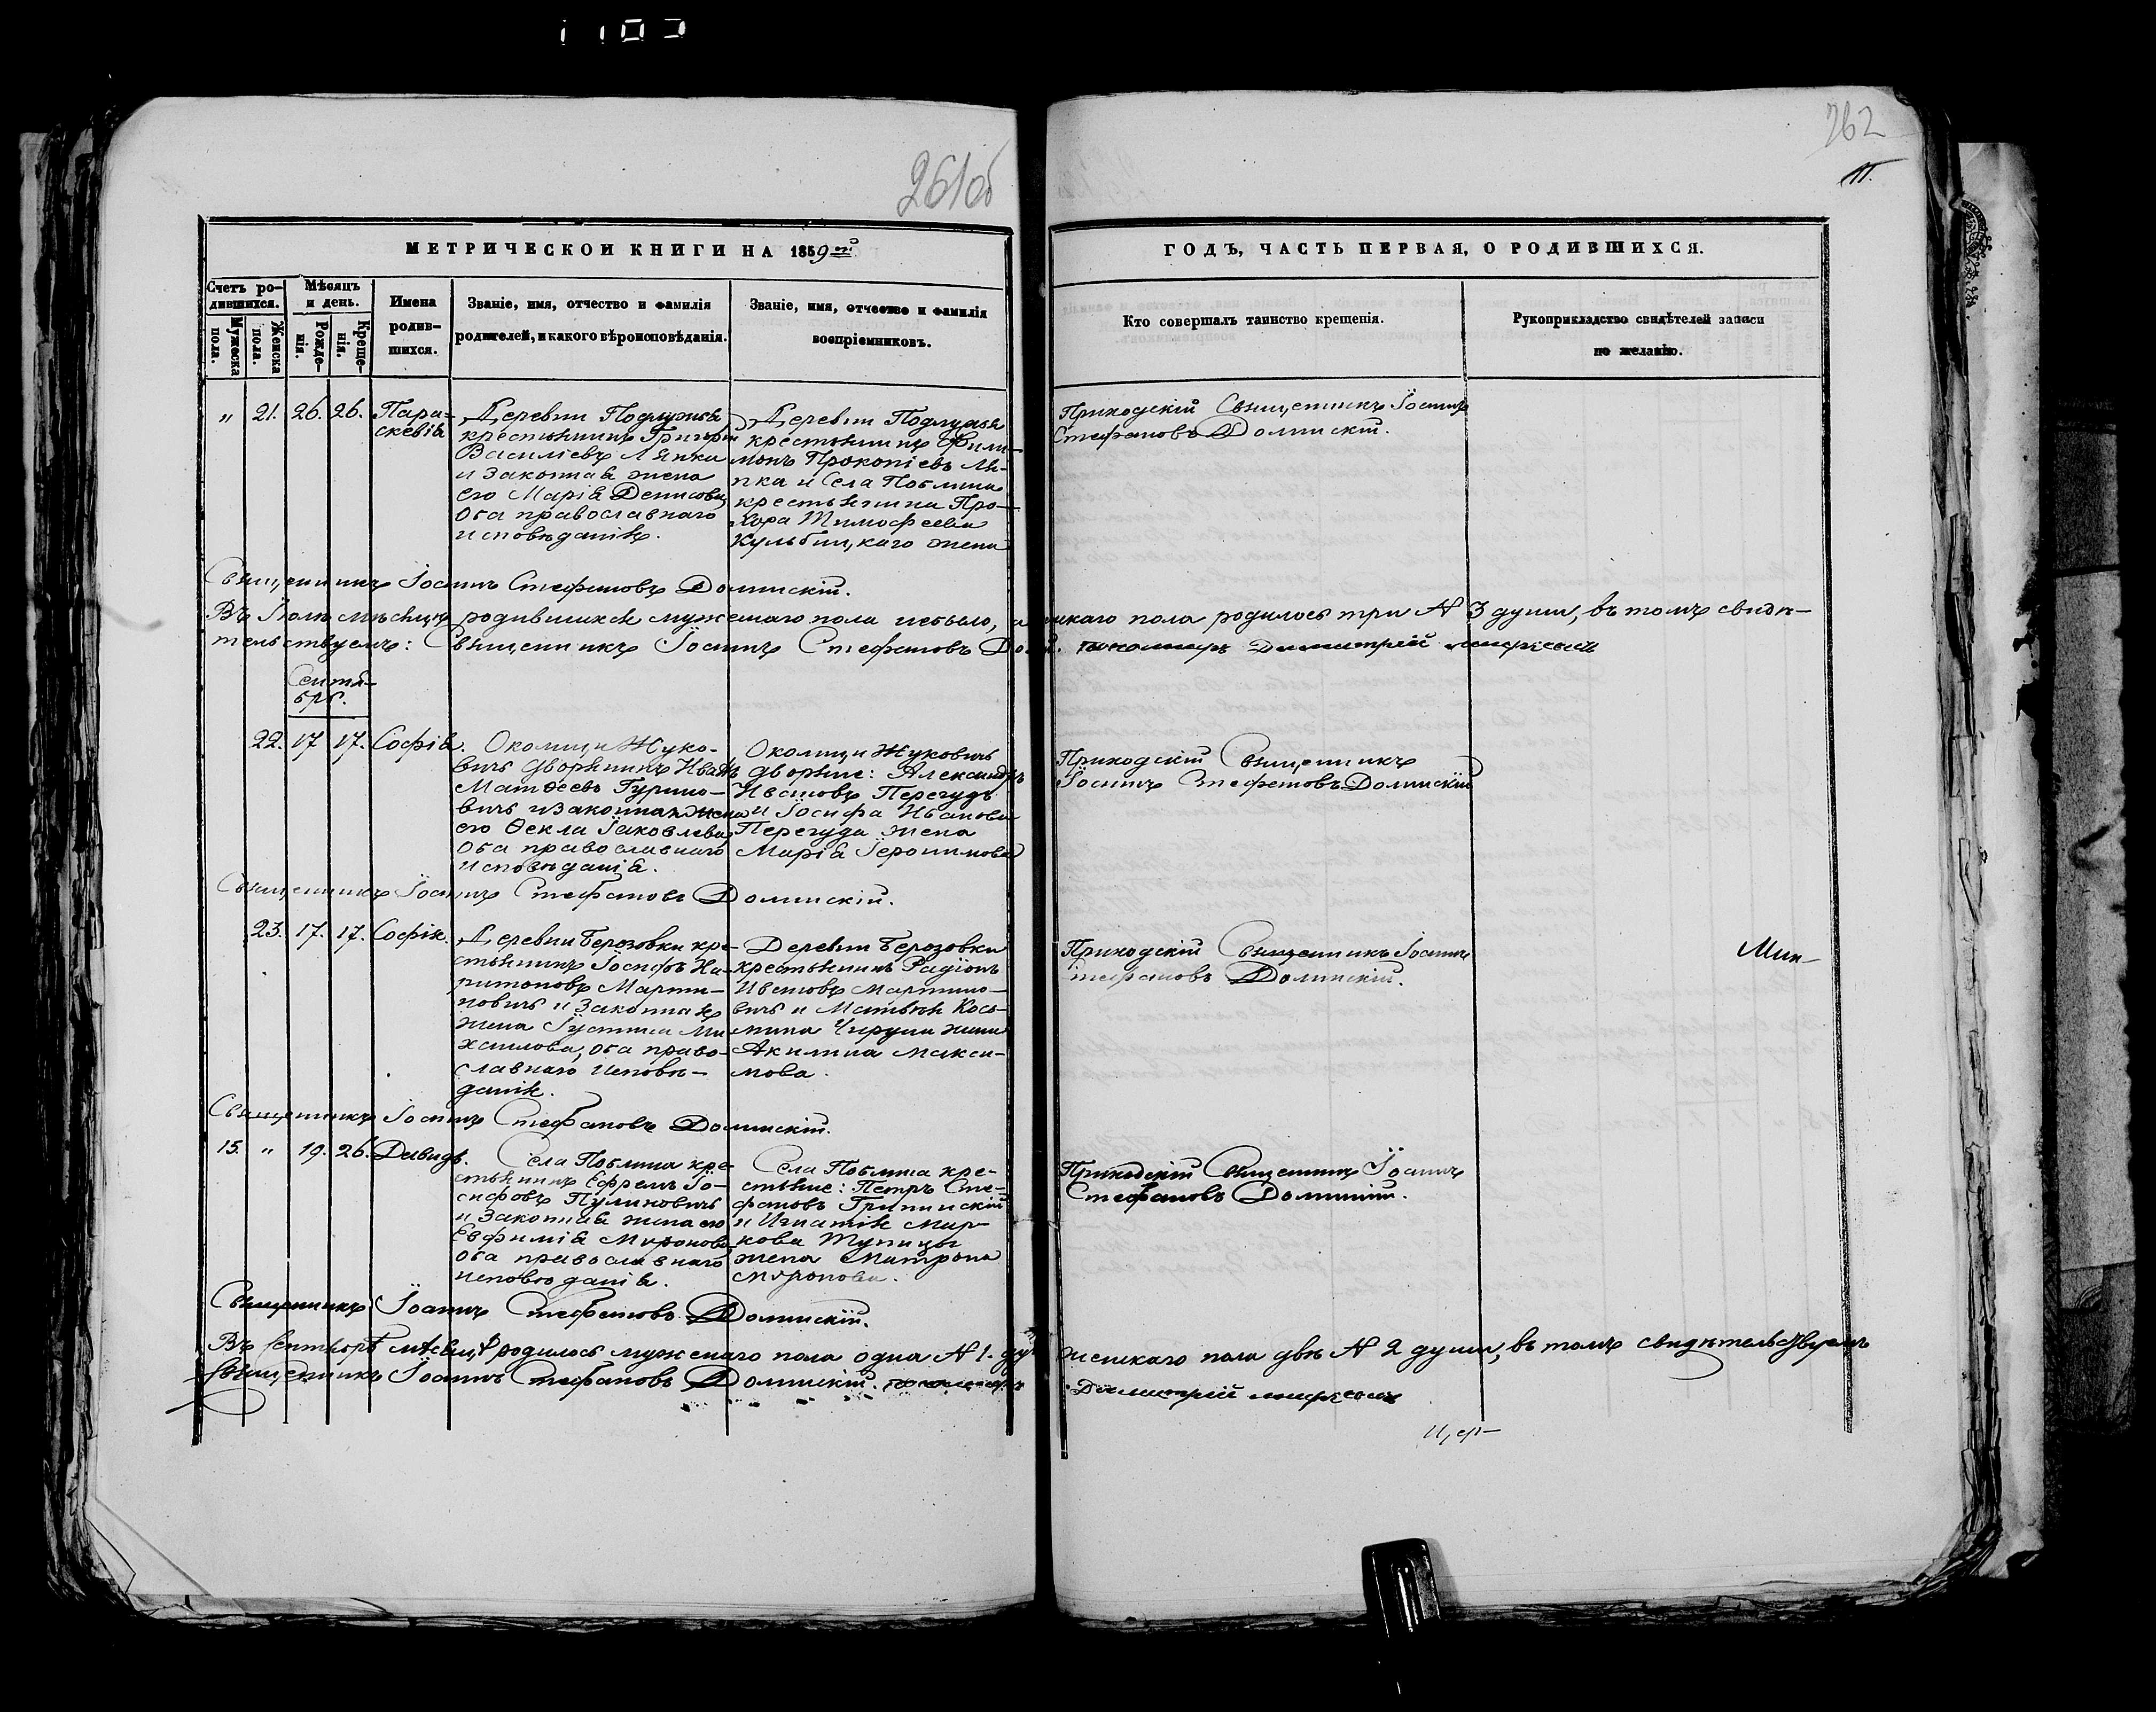 261об
262
11.
МЕТРИЧЕСКОИ КНИГИ НА 1859 ый
ГОДЪ, ЧАСТЬ ПЕРВАЯ, О РОДИВШИХСЯ.
Счетъ ро-
дившихся.
Мужеска
пола.
Женска
пола.
Мѣсяцъ
и день.
Рожде-
нія.
Креще-
нія.
Имена
родив-
шихся.
Званіе, имя, отчество и фамилія
родителей, и какого вѣроисповѣданія.
Званіе, имя, отчество и фамилія
воспріемниковъ.
Кто совершалъ таинство крещенія.
Рукоприкладство свидѣтелей записи
по желанію.
„ 21. 26. 26. Пара-
скевія
Деревни Подлужья
крестьянинъ Григорій
Василіевъ Ляпка
и законная жена
его Марія Денисова,
оба православнаго
исповѣданія.
Деревни Подлужья
крестьянинъ Фили-
монъ Прокопіевъ Ля-
пка и Села
крестьянина Про-
хора Тимофеева
жена
Приходскій Священникъ Іоаннъ
Стефановъ Долинскій.
Священникъ Іоаннъ Стефановъ Долинскій.
Въ мѣсяцѣ родившихся мужескаго пола небыло, а женскаго пола родилось три № 3 души, въ томъ свидѣ-
тельствуемъ: Священникъ Іоаннъ Стефановъ Димитрій
Сентя-
брь.
22. 17 17. Софія.
Околицы Жуко-
вичъ дворянинъ Иванъ
Матѳеевъ Гурино-
вичъ и законная жена
его Ѳекла Іаковлева,
оба православнаго
исповѣданія.
Околицы Жуковичъ
дворяне: Александръ
Ивановъ Перегудъ
и Іосифа Иванова
Перегуда жена
Марія Іеронимова
Приходскій Священникъ
Іоаннъ Стефановъ Долинскій
Священникъ Іоаннъ Стефановъ Долинскій.
23. 17. 17. Софія.
Деревни Берозовки кре-
стьянинъ Іосифъ Ха-
ритоновъ Марти-
новичъ и законная
жена Іустина Ми-
хаилова, оба право-
славнаго исповѣ-
данія.
Деревни Берозовки
крестьянинъ Радіонъ
Ивановъ Мартино-
вичъ и Матвѣя Кось-
мина жена
Акилина Макси-
мова.
Приходскій Священникъ Іоаннъ
Стефановъ Долинскій.
Мин-
Священникъ Іоаннъ Стефановъ Долинскій.
15. „ 19. 26. Давидъ.
Села кре-
стьянинъ Ефремъ Іо-
сифовъ Пулиновичъ
и законная жена его
Евфимія Миронова,
оба православнаго
исповѣданія.
Села кре-
стьяне: Петръ Сте-
фановъ
и Игнатія Мар-
кова Тупицы
жена Матрона
Миронова.
Приходскій Священникъ Іоаннъ
Стефановъ Долинскій.
Священникъ Іоаннъ Стефановъ Долинскій.
Въ Сентябрѣ мѣсяцѣ родилось мужескаго пола одна № 1. женскаго пола двѣ № 2 души, въ томъ свидѣтельствуемъ
Священникъ Іоаннъ Стефановъ Долинскій. Димитрій
Цер-